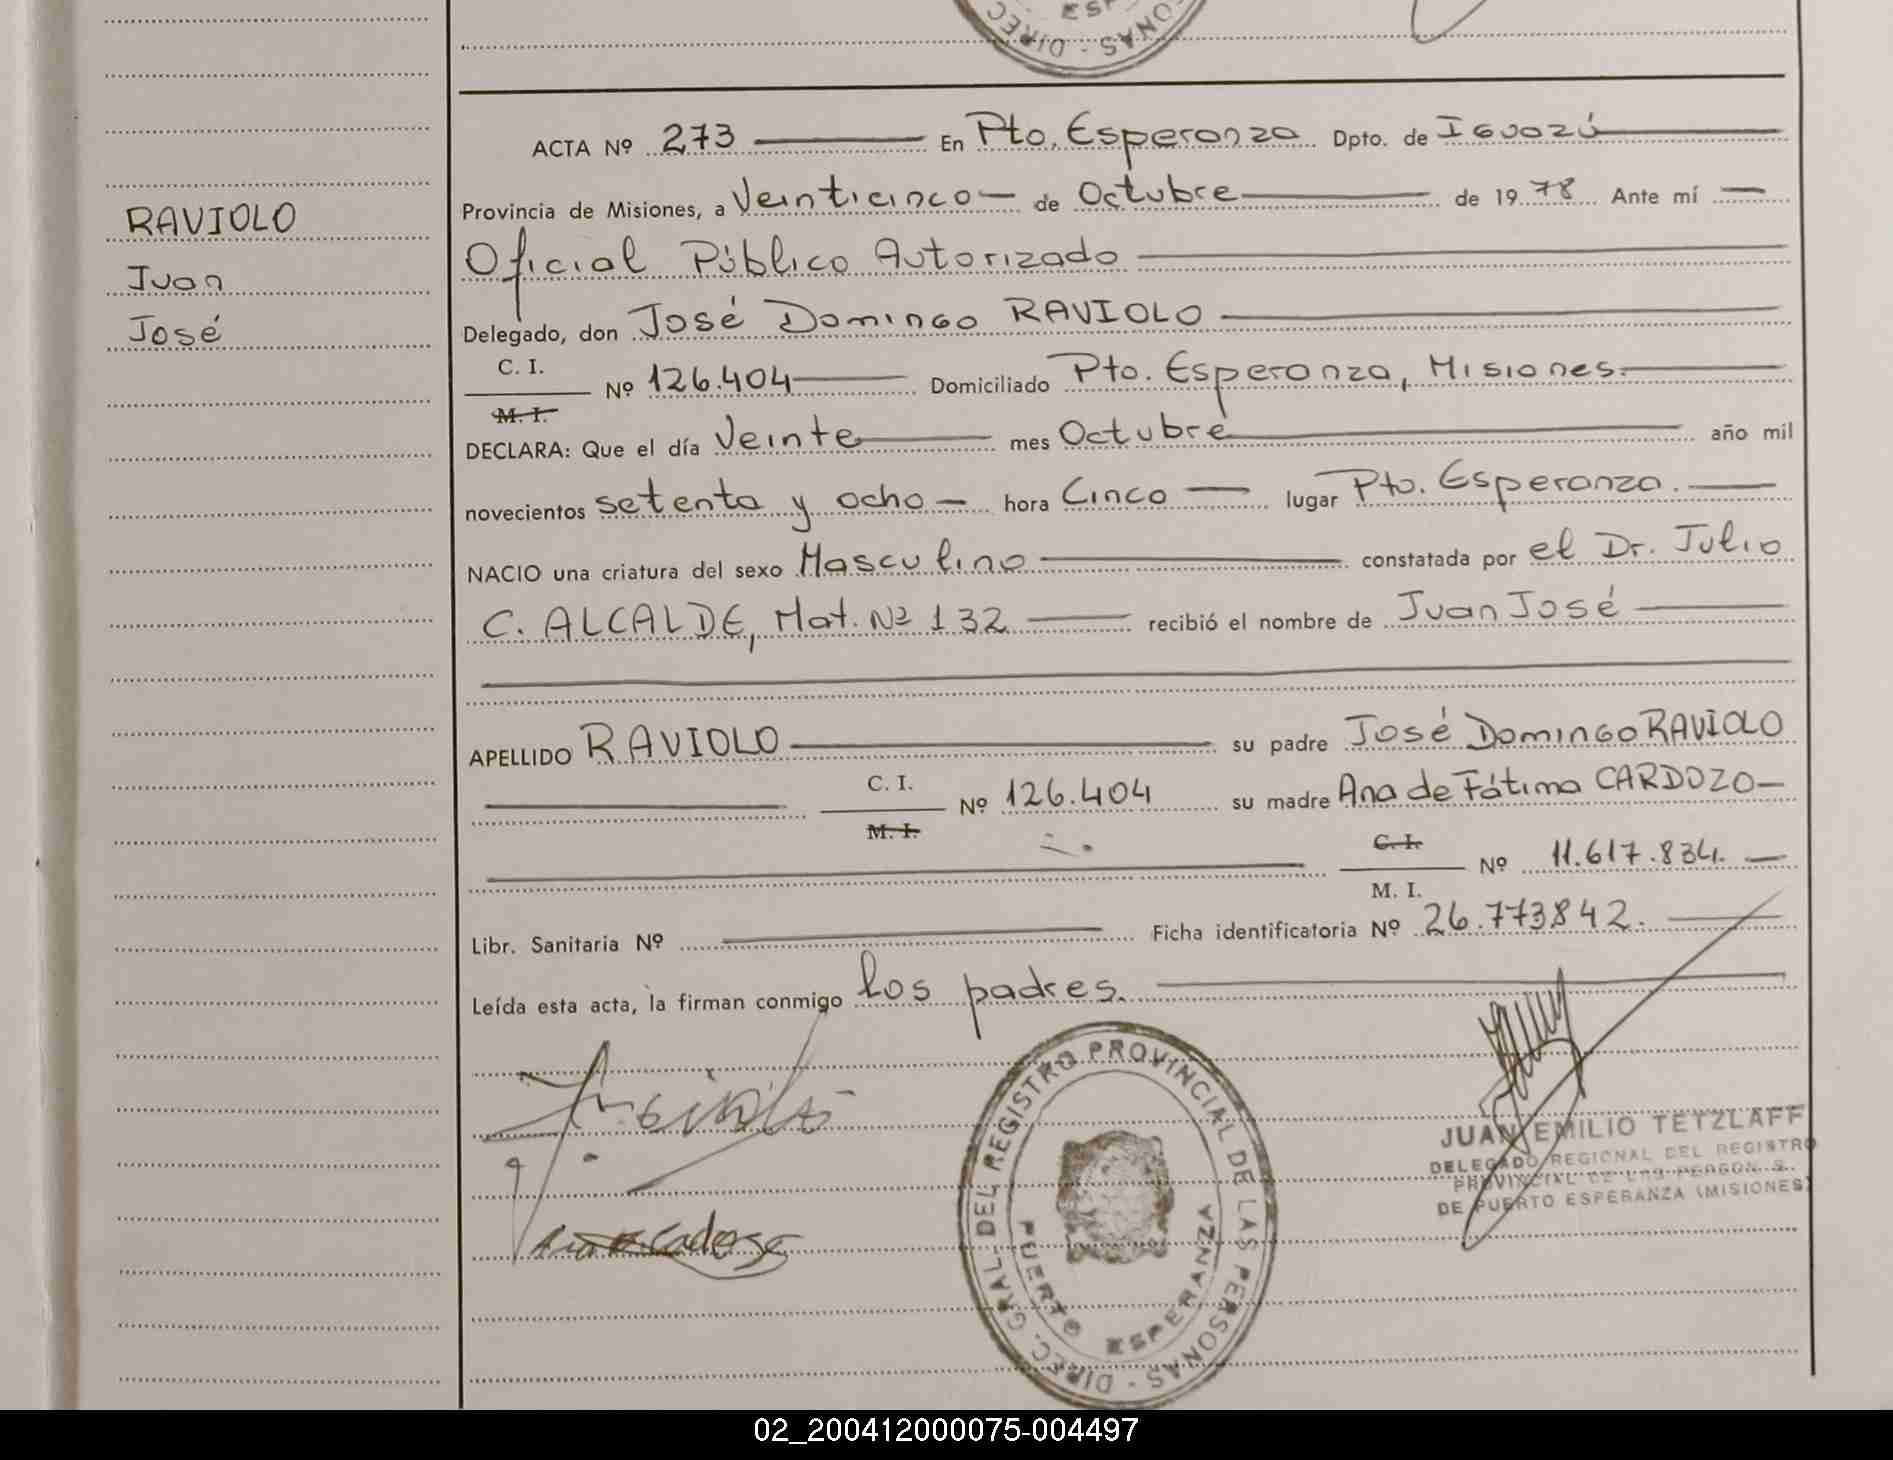 RAVIOLO
Juan
José
ACTA Nº 273 En Pto. Esperanza Dpto. de Iguazú
Provincia de Misiones, a Veinticinco de Octubre de 1978 Ante mí
Oficial Público Autorizado
Delegado, don José Domingo RAVIOLO
C. I.
M. I. Nº 126.404 Domiciliado Pto. Esperanza, Misiones.
DECLARA: Que el día Veinte mes Octubre año mil
novecientos setenta y ocho hora Cinco lugar Pto. Esperanza.
NACIO una criatura del sexo Masculino constatada por el Dr. Julio
C. ALCALDE, Mat. Nº 132 recibió el nombre de Juan José
APELLIDO RAVIOLO su padre José Domingo RAVIOLO
C. I.
M. I. Nº 126.404 su madre Ana de Fátima CARDOZO
C. I.
M. I. Nº 11.617.834.
Libr. Sanitaria Nº Ficha identificatoria Nº 26.773842.
Leída esta acta, la firman conmigo los padres.
DIREC. GRAL. DEL REGISTRO PROVINCIAL DE LAS PERSONAS -
PUERTO ESPERANZA
JUAN EMILIO TETZLAFF
DELEGADO REGIONAL DEL REGISTRO
PROVINCIAL DE LAS PERSON S.
DE PUERTO ESPERANZA (MISIONES)
02_200412000075-004497